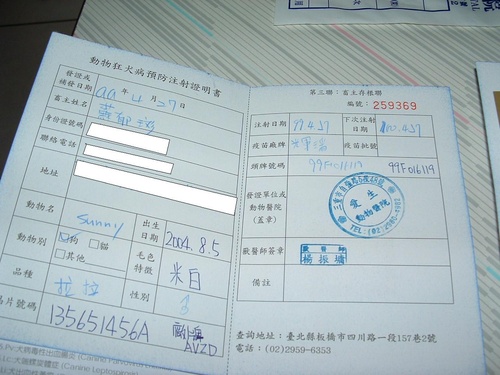 動物狂犬病預防注射證明書
發證或
補發日期
99年4月27日
畜主姓名
身份證號碼
聯絡電話
地址
動物名
sunny
出生
日期
2004.8.5
動物別
狗 貓
其他
毛色
特徵
米白
品種
拉拉
性別
晶片號碼
135651456A
AVZD
(Canine Leptospirosis)
第三聯：畜主存根聯
編號：259369
注射日期
99.4.27
下次注射
日期
100.4.27
疫苗廠牌
疫苗批號
頸牌號碼
99F016119
99F016119
發證單位或
動物醫院
(蓋章)
愛生
動物醫院
獸醫師簽章
獸醫師
楊振墉
備註
查詢地址：臺北縣板橋市四川路一段157巷2號
電話：(02)2959-6353